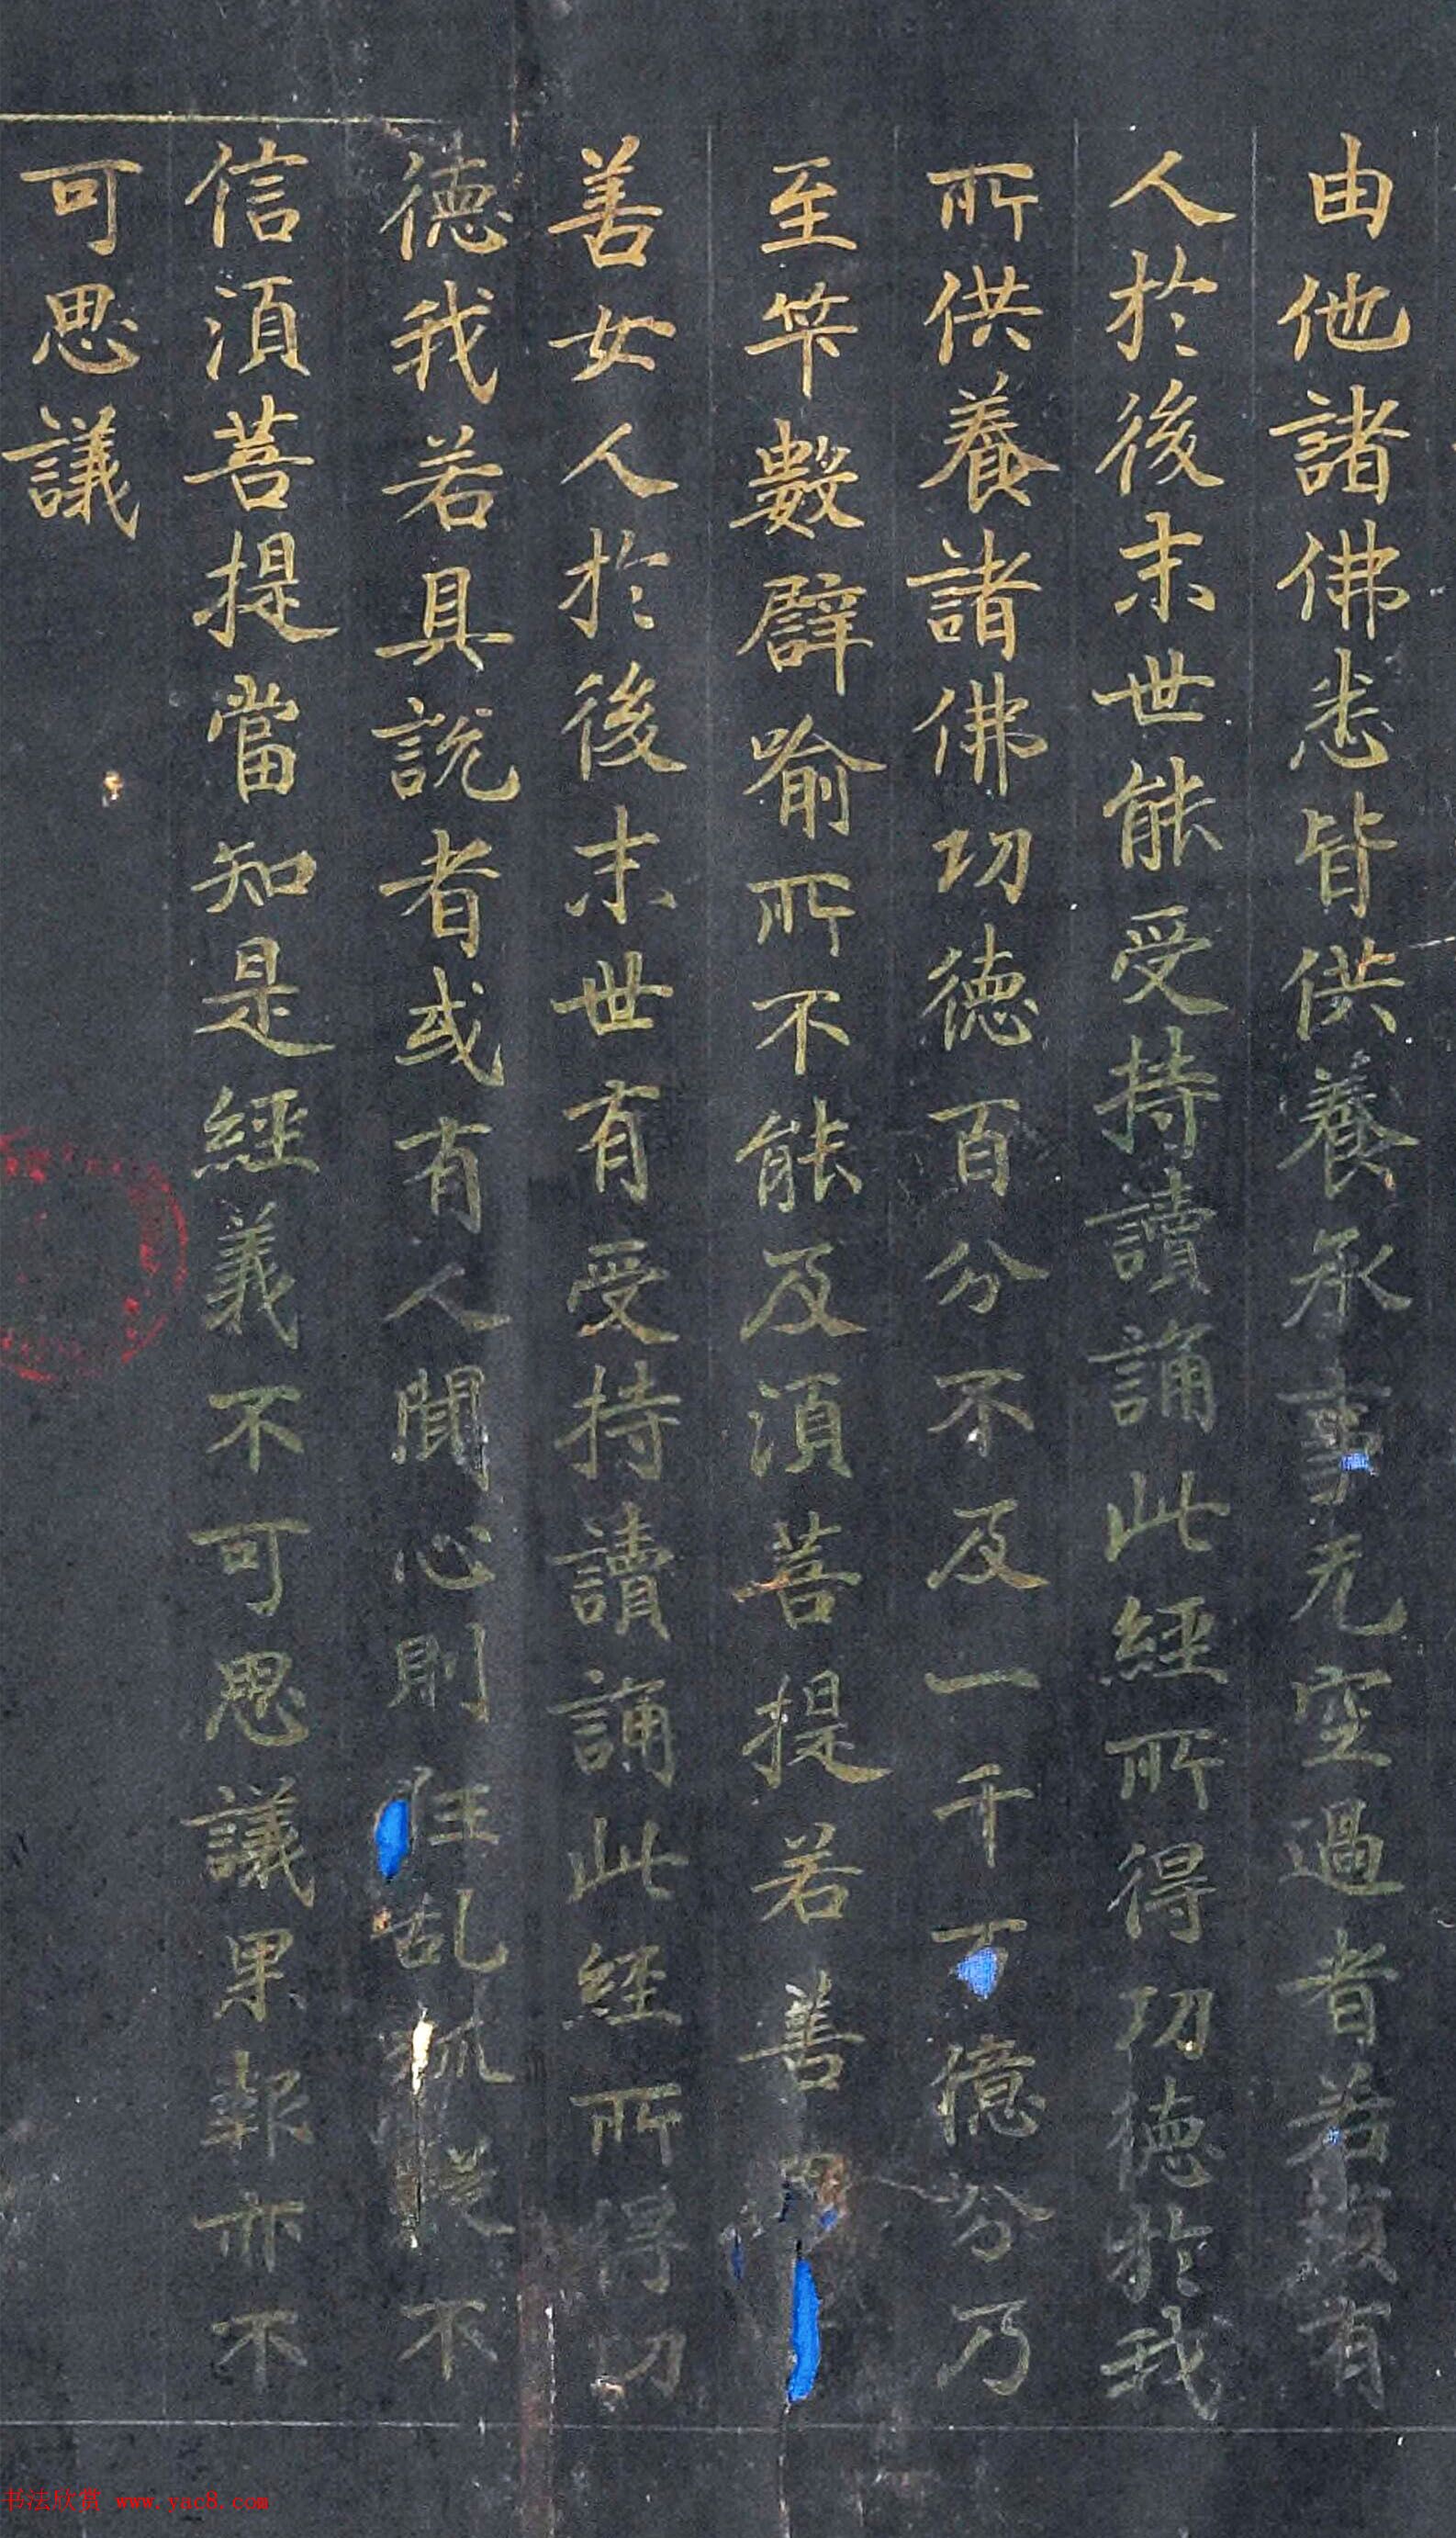 由他諸佛悉皆供養承事无空過者若復有
人於後末世能受持讀誦此經所得功德於我
所供養諸佛功德百分不及一千万億分乃
至笇數譬喻所不能及須菩提若善男
善女人於後末世有受持讀誦此經所得功
德我若具說者或有人聞心則狂乱狐疑不
信須菩提當知是經義不可思議果報亦不
可思議
书法欣赏 www.yac8.com